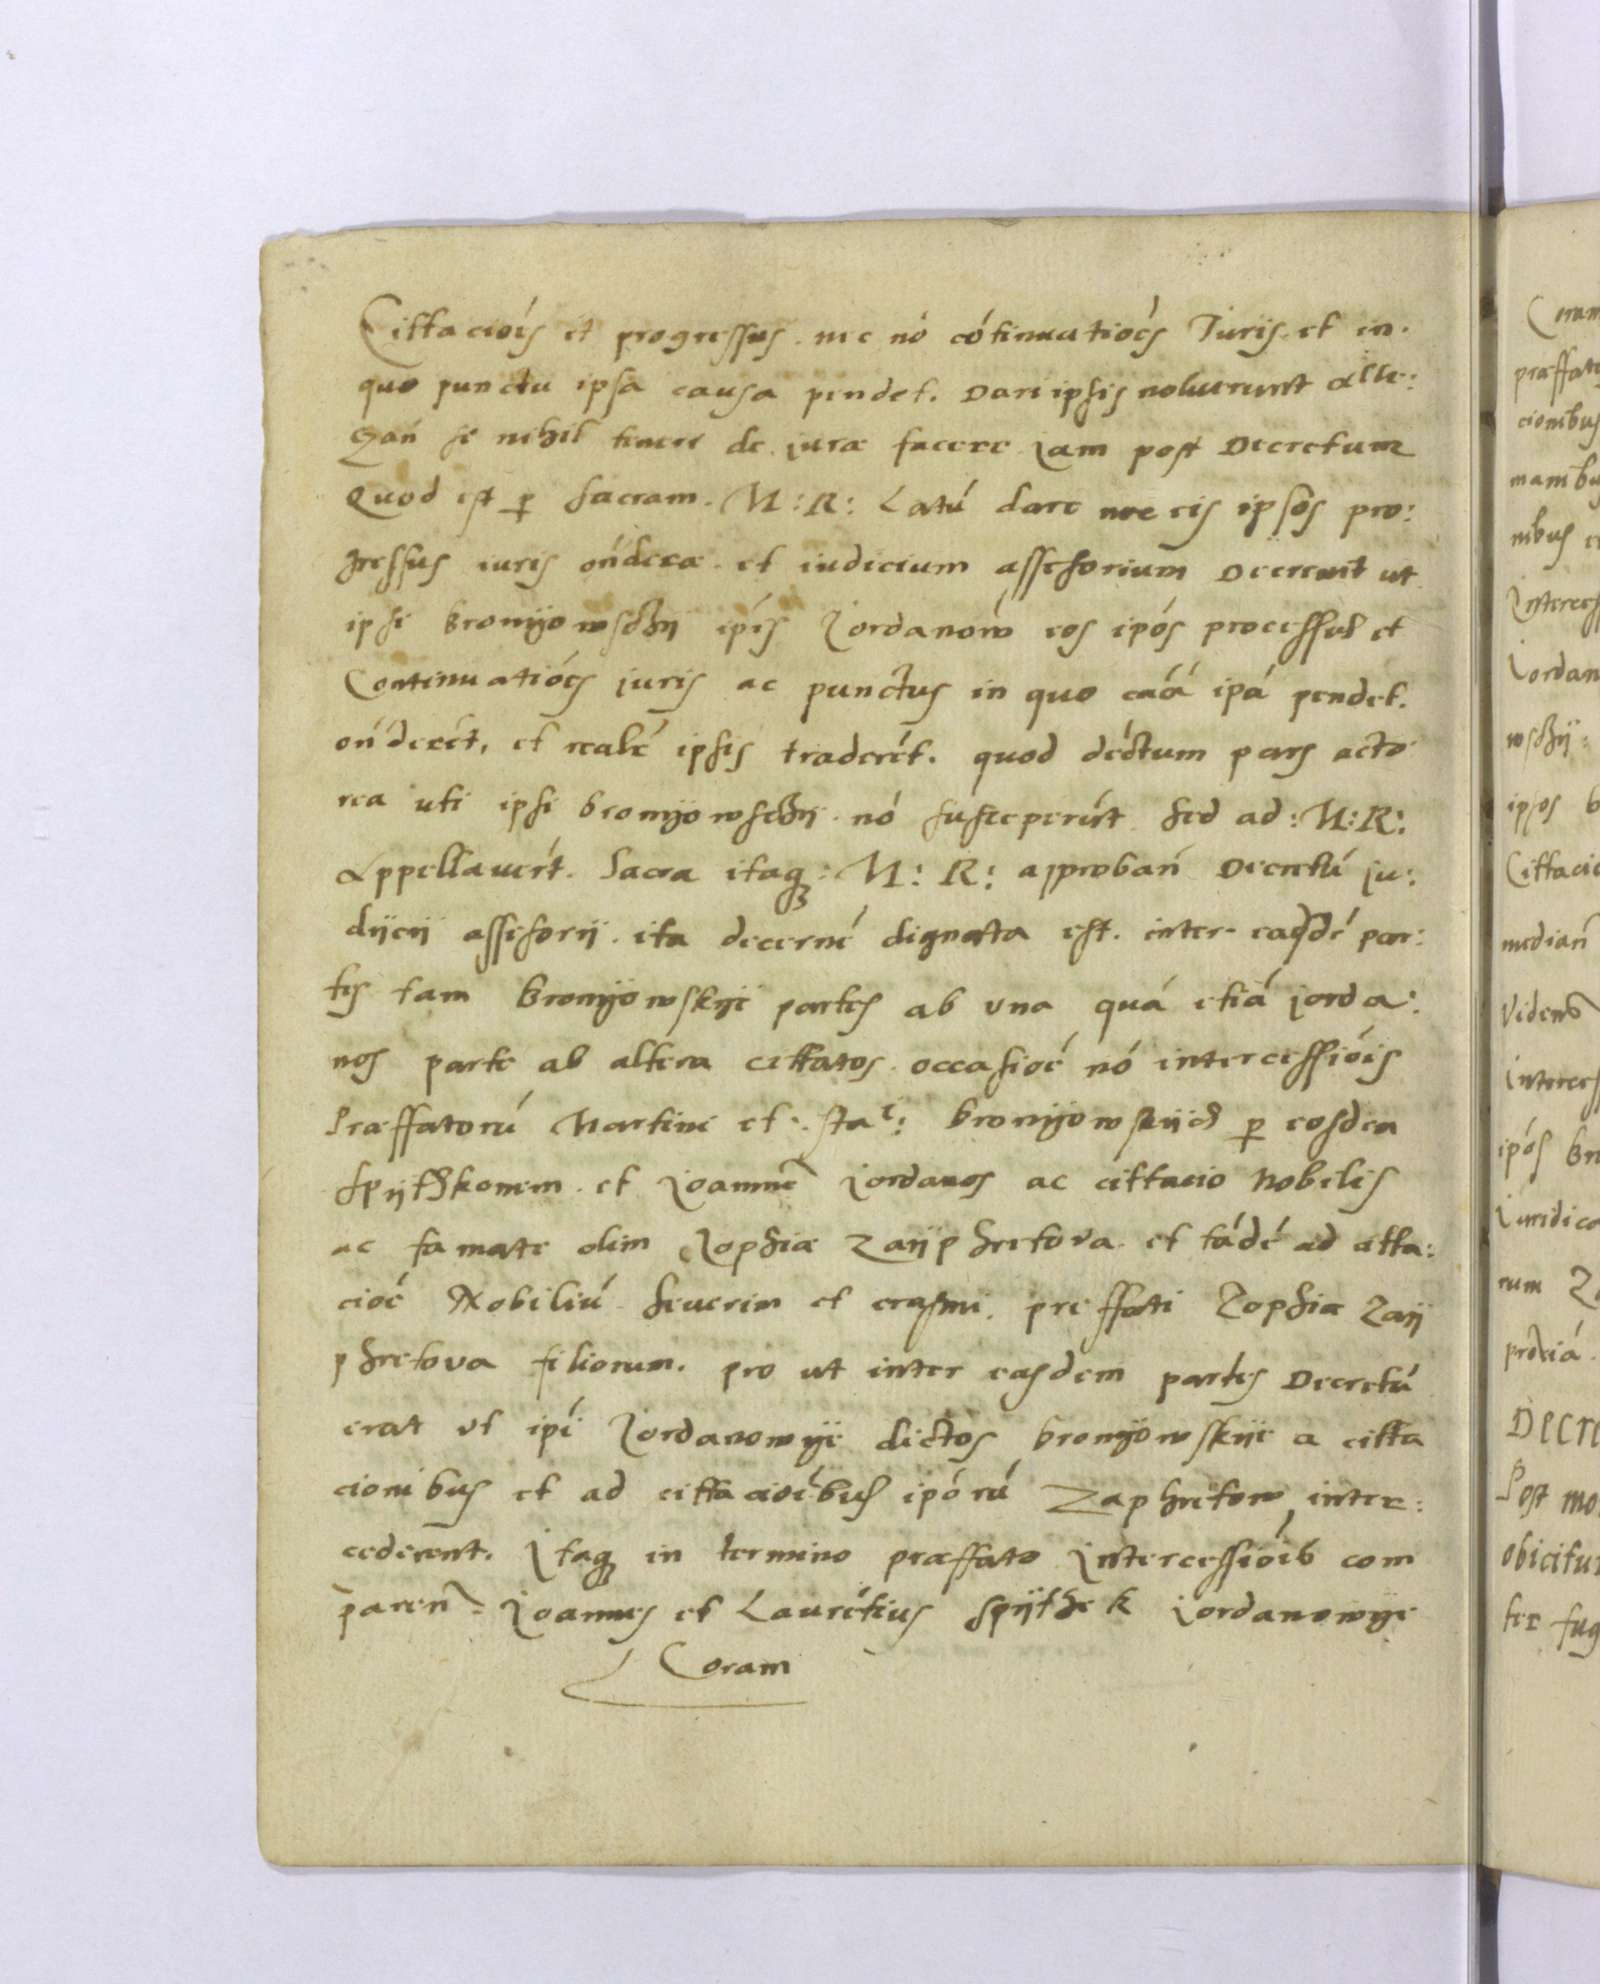 Cittacióis et progressus. nec nó cótinuatióes Juris. et in.
quo punctu ipsa causa pendet. Dare ipsis noluerunt alle:
gań se nihil teneri de. jure facere jam post Decretum
Quod est p sacram. M: R: Latú dare nec eis ipsos pro:
gressus iuris ońdere. et iudicium assessorium Decreuit ut
ipsi bronyowschy ipéis Jordanow eos ipós processus et
Continuatióes juris ac punctus in quo caá ipá pendet.
oń deret, et realé ipsis traderét. quod déctum pars acto
rea uti ipsi bronyowschy. nó susceperút sed ad: M: R:
Appellauerút. Sacra itaq: M: R: approbań Decretú ju:
dycy assessory. ita decerné dignata est. inter easdé par:
tes tam bronyowskye partes ab una quá etiá jorda:
nos parte ab altera cittatos. occasioé nó intercessióis
Præffatorú Martini et. sta: bronyowskych p eosdem
Spythkonem. et Joannem Jordanos ac cittacio Nobilis
ac famate olim Zophiæ Zayphretova. et tádé ad citta:
cioé Nobiliú Seuerini et erasmi. preffati Zophiæ Zay
phretova filiorum. pro ut inter easdem partes Decretú
erat ut ipí Jordanowye dictos bronyowskye a citta
cionibus et ad cittacioébus ipórú Zaphretow, inter:
cederent. Itaq in termino præffato Intercessióis com
paren: Joannes et Lauretius Spythek Jordanowye
Coram
Coram
præffato
cionibus
manibus
nibus
Jordan
wschy:
ipsos b
Cittacio
median
Viden
ipós br
Juridica
rum Z
Decre
Post mo
obicitur
ter fug